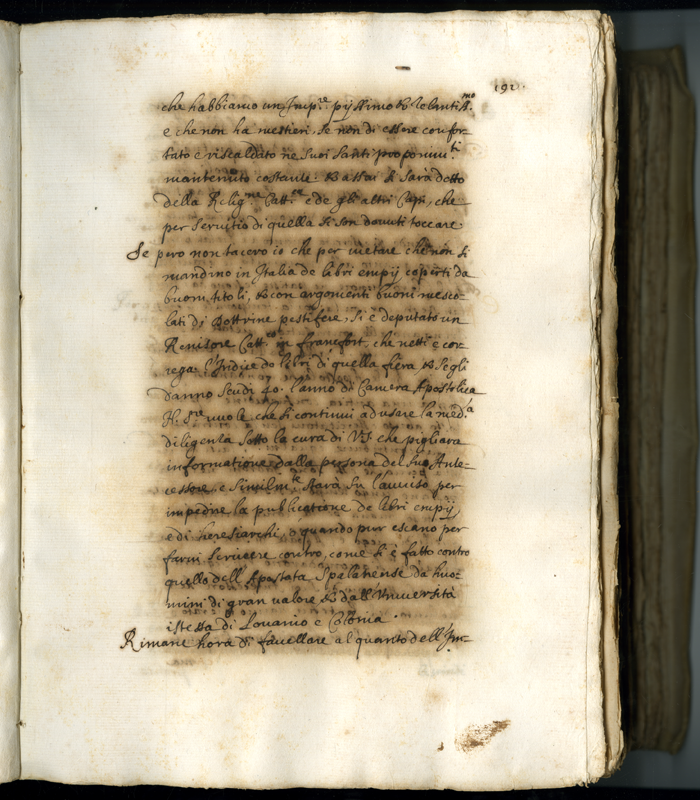 192.
che habbiamo un Imp.re pijssimo et zelantiss.mo
e che non ha mestieri, se non di essere confor-
tato e riscaldato ne suoi santi proponim.ti
mantenuto costante. Et assai si sarà detto
della Relig.ne Catt.ca e de gli altri Capi, che
per servitio di quella si son dovuti toccare.
Se pero non tacero io che per vietare che non si
mandino in Italia de libri empij coperti da
buoni titoli, et con argomenti buoni mesco-
lati di Dottrine pestifere, si è deputato un
Revisore Catt.co in francfort, che netti e cor-
rega l'Indice de libri di quella fiera et se gli
danno scudi 40. l'anno di Camera Apostolica
N. S.re vuole che si continui ad usare la med.a
diligenza sotto la cura di V.S. che pigliara
informatione dalla persona del suo Ante-
cessore, e similm.te starà su l'avviso per
impedire la publicatione de libri empij
e di heresiarchi, o quando pur escano per
farvi scrivere contro, come si è fatto contro
quello dell'Apostata Spalatense da huo-
mini di gran valore et dall'Università
istessa di Lovanio e Colonia.
Rimane hora di favellare al quanto dell'Im-